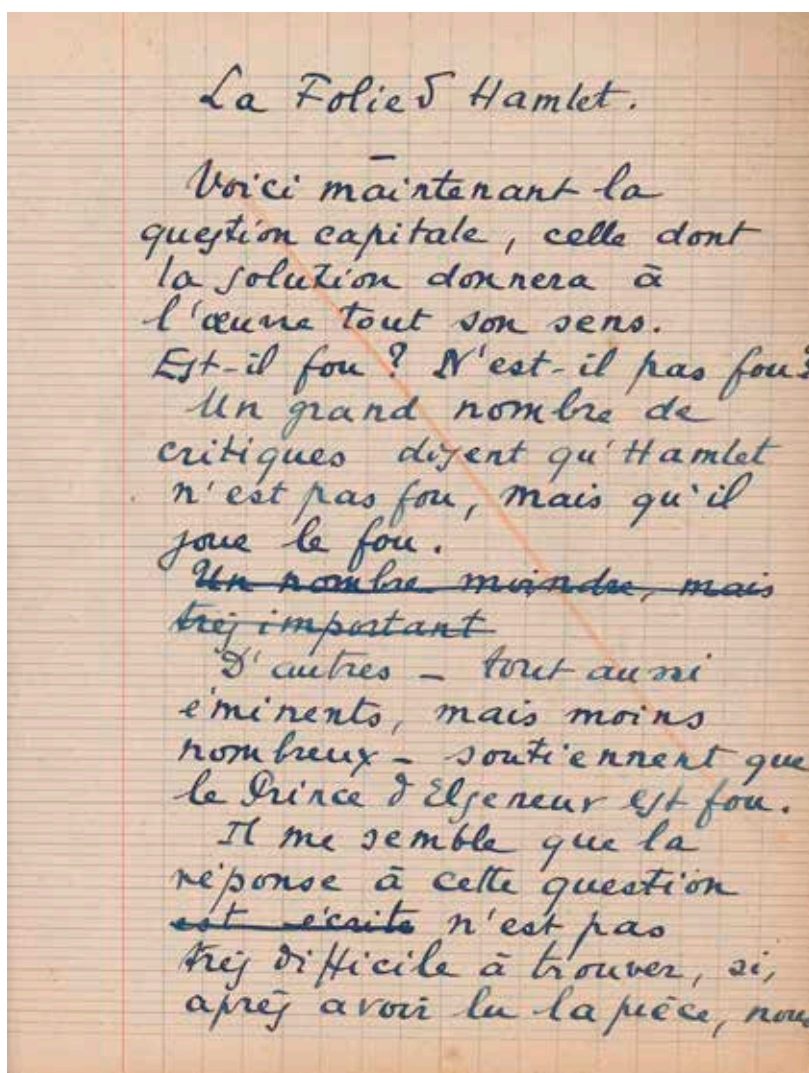 La Folie d'Hamlet.
Voici maintenant la
question capitale, celle dont
la solution donnera à
l'œuvre tout son sens.
Est-il fou ? N'est-il pas fou ?
Un grand nombre de
critiques disent qu'Hamlet
n'est pas fou, mais qu'il
joue le fou.
Un nombre moindre, mais
très important
D'autres - tout aussi
éminents, mais moins
nombreux - soutiennent que
le Prince d'Elseneur est fou.
Il me semble que la
réponse à cette question
est écrite n'est pas
très difficile à trouver, si,
après avoir lu la pièce, nous